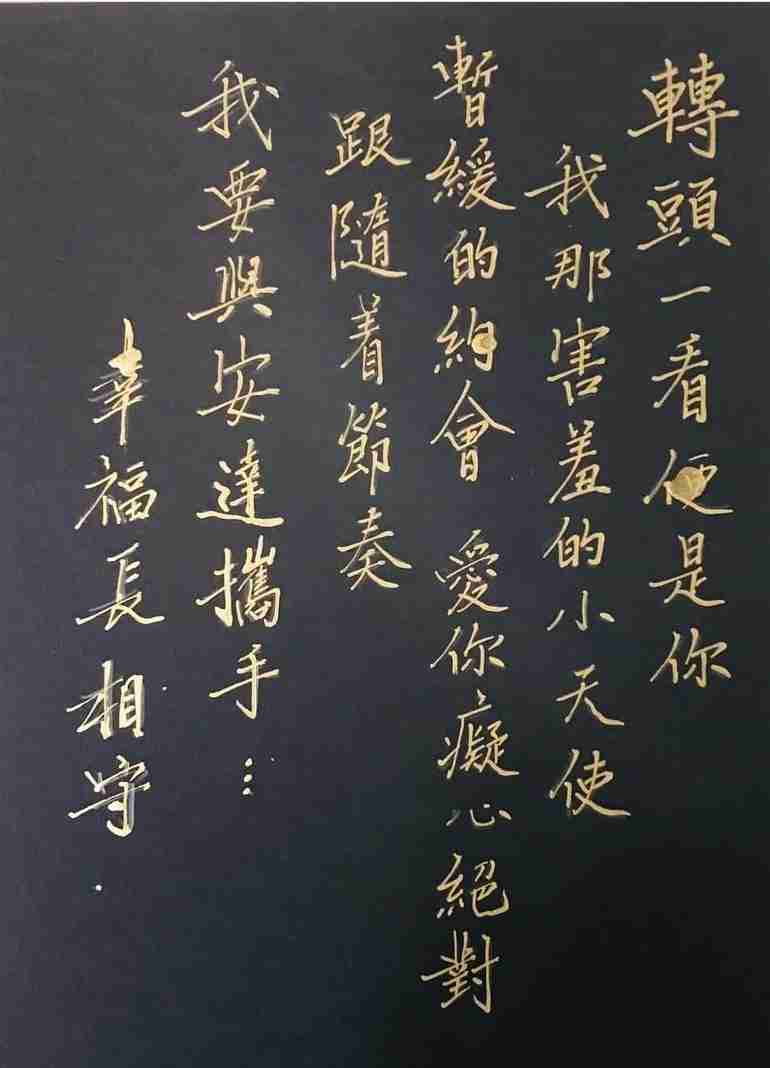 轉頭一看便是你
我那害羞的小天使
暫緩的約會 愛你癡心絕對
跟隨着節奏
我要與安達攜手…
幸福長相守.